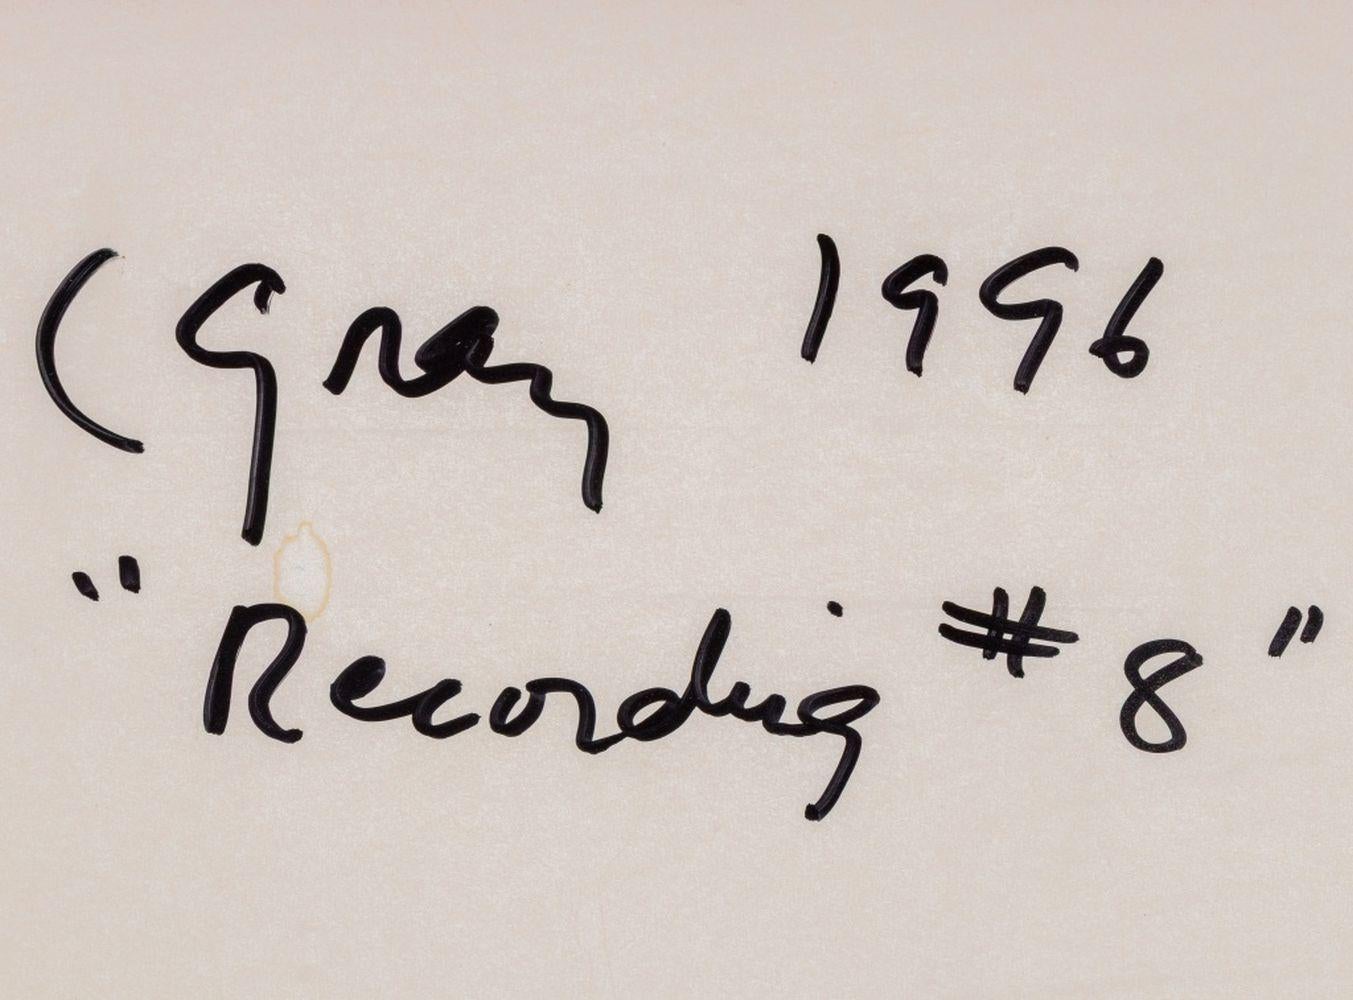 C Gray 1996
"Recording # 8"